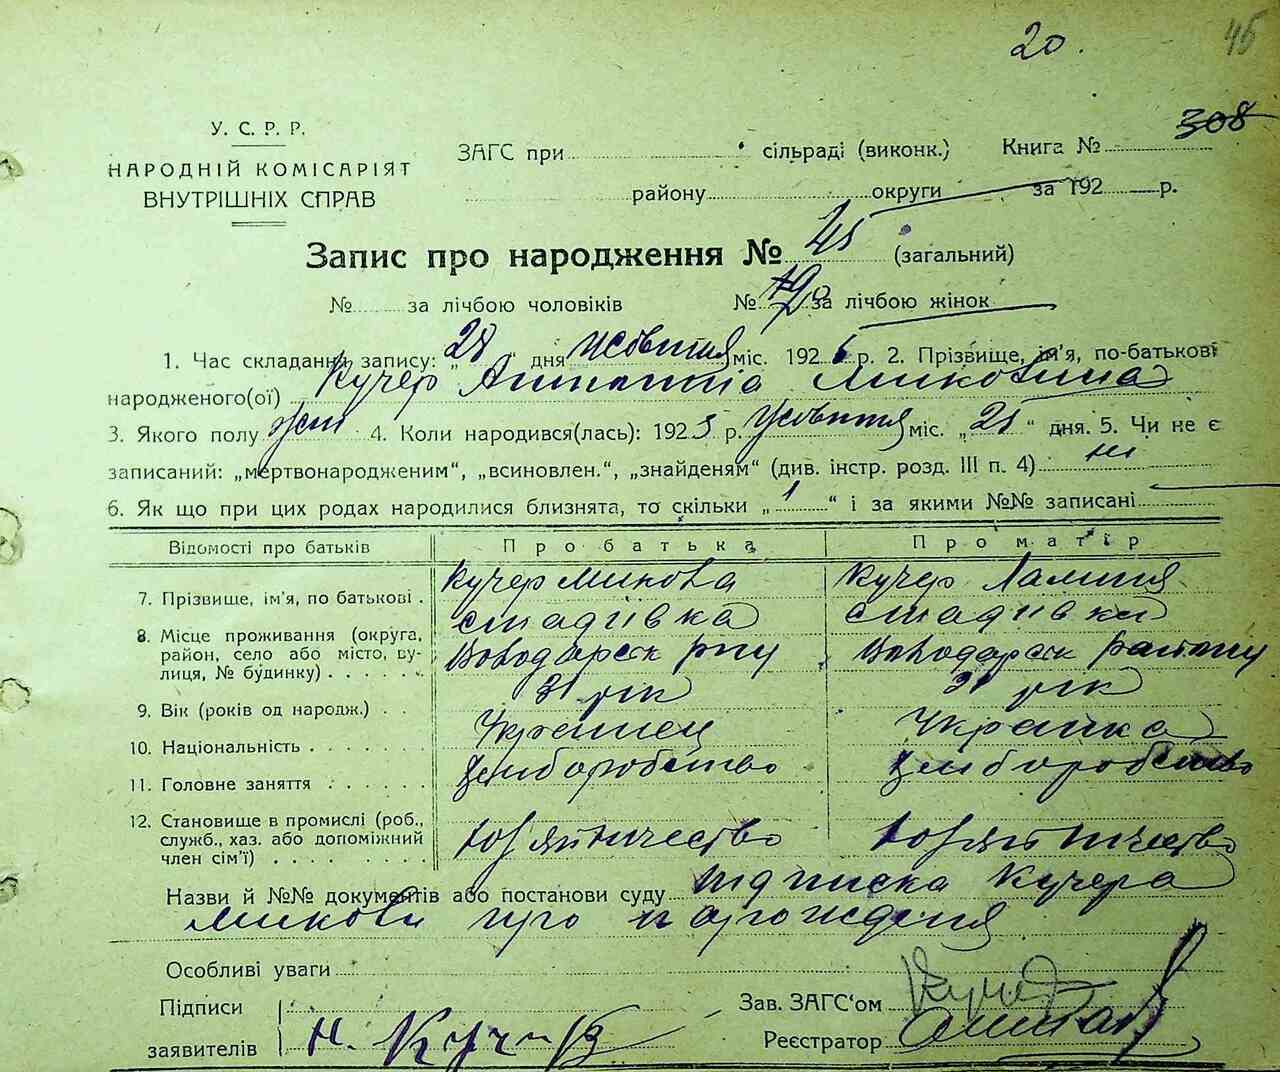 20.
45
У. С. Р. Р.
НАРОДНІЙ КОМІСАРІЯТ
ВНУТРІШНІХ СПРАВ
ЗАГС при сільраді (виконк.) Книга № 308
району округи за 192 р.
Запис про народження № 45 (загальний)
№ за лічбою чоловіків № за лічбою жінок
1. Час складання запису: „28“ дня Жовтня міс. 192 р. 2. Прізвище, ім'я, по-батькові
народженого(ої) Кучер
3. Якого полу жін 4. Коли народився(лась): 1923 р. Жовтня міс. „25“ дня. 5. Чи не є
записаний: „мертвонародженим“, „всиновлен.“, „знайденям“ (див. інстр. розд. III п. 4) ні
6. Як що при цих родах народилися близнята, то скільки „1“ і за якими №№ записані
Відомості про батьків Про батька Про матір
7. Прізвище, ім'я, по батькові . Кучер Микола Кучер
8. Місце проживання (округа, район, село або місто, вулиця, № будинку) . . . . . .
Володарск рну Володарск району
9. Вік (років од народж.) . . 31 рік 31 рік
10. Національність . . . . . . . Украинец Украинка
11. Головне заняття . . . . . . землоробство землоробство
12. Становище в промислі (роб., служб., хаз. або допоміжний член сім'ї) . . . . . . . .
Назви й №№ документів або постанови суду підписка Кучера
Миколи про нарожденя
Особливі уваги
Підписи
заявителів Н. Кучер
Зав. ЗАГС'ом
Реєстратор